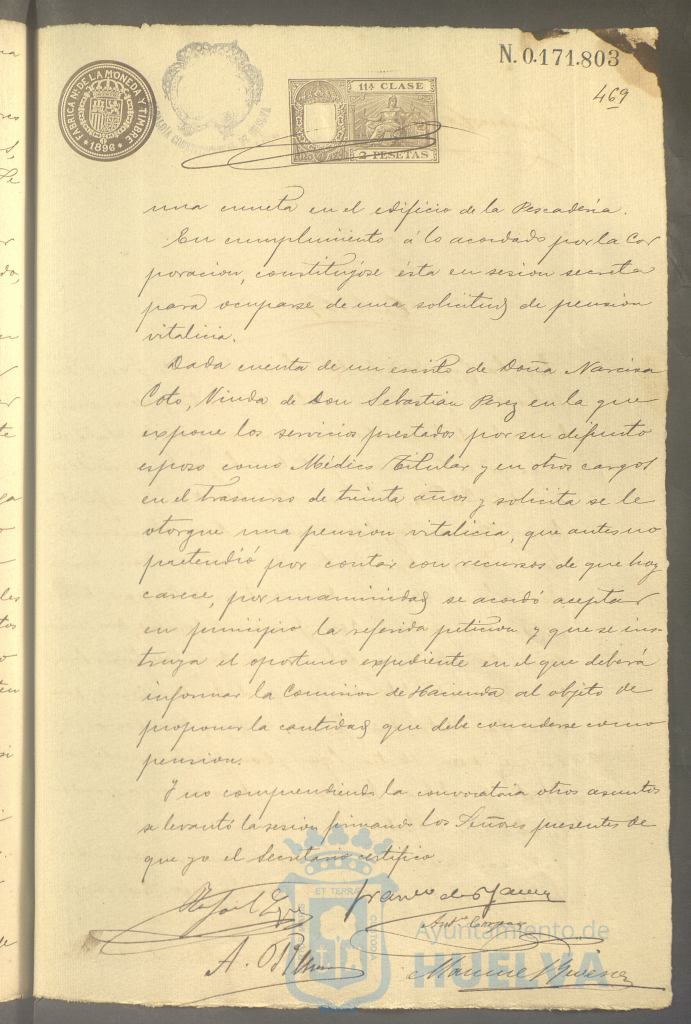 N. 0.171.803
469
FABRICA N. DE LA MONEDA Y TIMBRE
1896
11ª CLASE
2 PESETAS
una cuneta en el edificio de la Pescadería.
En cumplimiento á lo acordado por la Cor
poracion, constituyóse ésta en sesion secreta
para ocuparse de una solicitud de pension
vitalicia.
Dada cuenta de un escrito de Doña Narcisa
Coto, Viuda de Don Sebastian Perez en la que
expone los servicios prestados por su difunto
esposo como Médico Titular y en otros cargos
en el trascurso de treinta años y solicita se le
otorgue una pension vitalicia, que antes no
pretendió por contar con recursos de que hoy
carece, por unanimidad se acordó aceptar
en principio la referida peticion y que se ins-
truya el oportuno expediente en el que deberá
informar la Comision de Hacienda al objeto de
proponer la cantidad que debe concederse como
pension.
Y no comprendiendo la convocatoria otros asuntos
se levantó la sesion firmando los Señores presentes de
que yo el Secretario certifico.
Rafael
A.
Manuel
ET TERRA
Ayuntamiento de
HUELVA